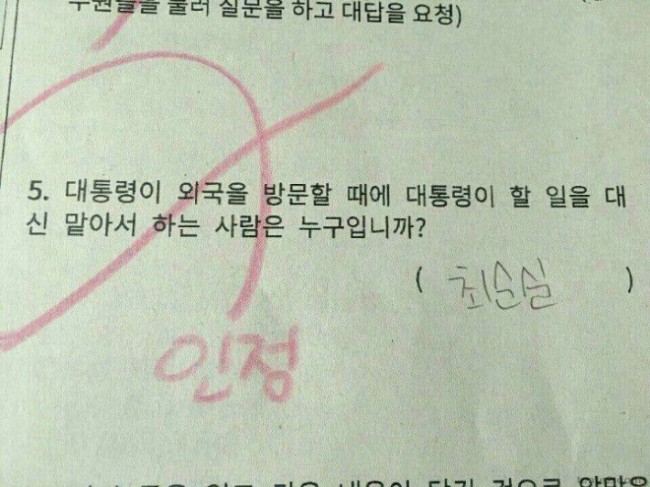 질문을 하고 대답을 요청)
5. 대통령이 외국을 방문할 때에 대통령이 할 일을 대
신 맡아서 하는 사람은 누구입니까?
( 최순실 )
인정